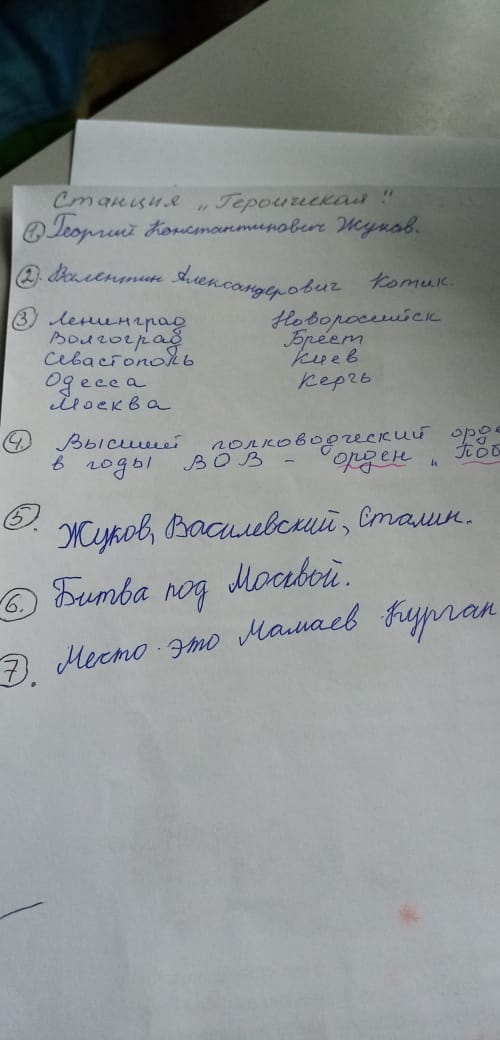 Станция „Героическая"
1. Георгий Константинович Жуков.
2. Валентин Александерович Котик.
3. Ленинград Новороссийск
Волгоград Брест
Севастополь Киев
Одесса Керчь
Москва
4. Высший полководческий орде
в годы ВОВ - орден „Поб
5. Жуков, Василевский, Сталин.
6. Битва под Москвой.
7. Место это Мамаев Курган